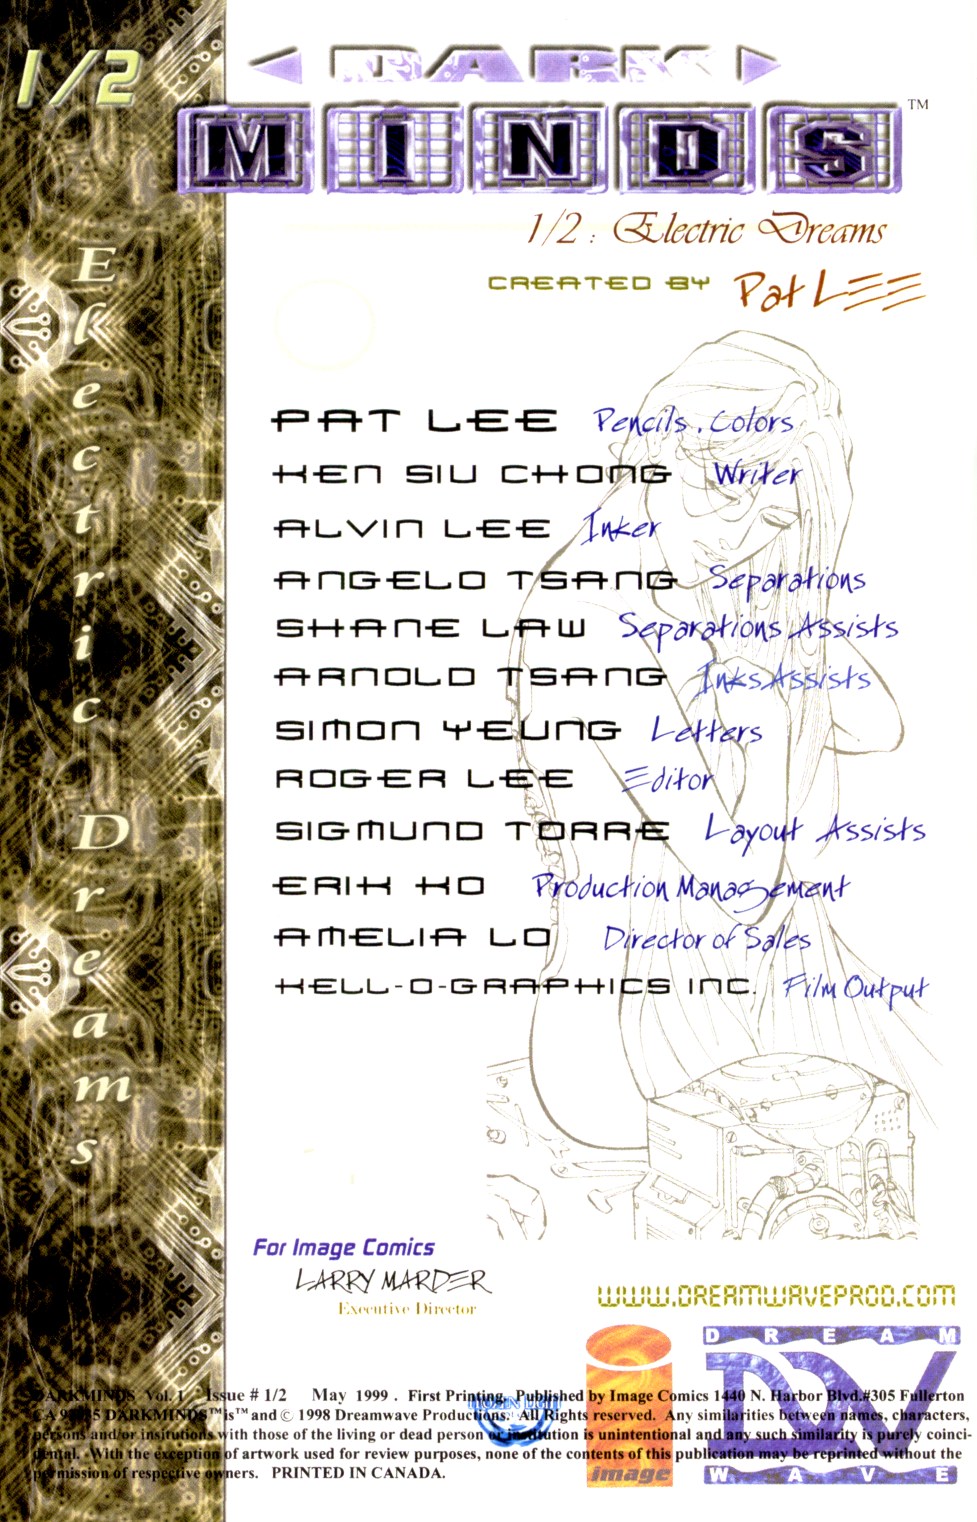 1/2
DARK
MINDS™
1/2 : Electric Dreams
CREATED BY Pat LEE
Electric Dreams
PAT LEE Pencils, Colors
KEN SIU CHONG Writer
ALVIN LEE Inker
ANGELO TSANG Separations
SHANE LAW Separations Assists
ARNOLD TSANG Inks Assists
SIMON YEUNG Letters
ROGER LEE Editor
SIGMUND TORRE Layout Assists
ERIK KO Production Management
AMELIA LO Director of Sales
HELL-O-GRAPHICS INC. Film Output
For Image Comics
LARRY MARDER
Executive Director
WWW.DREAMWAVEPROD.COM
DREAM
DW
WAVE
i
image
DARKMINDS Vol. 1 Issue # 1/2 May 1999 . First Printing. Published by Image Comics 1440 N. Harbor Blvd.#305 Fullerton
CA DARKMINDS™is™and © 1998 Dreamwave Productions. All Rights reserved. Any similarities between names, characters,
persons and/or insitutions with those of the living or dead person or institution is unintentional and any such similarity is purely coinci-
dental. With the exception of artwork used for review purposes, none of the contents of this publication may be reprinted without the
permission of respective owners. PRINTED IN CANADA.